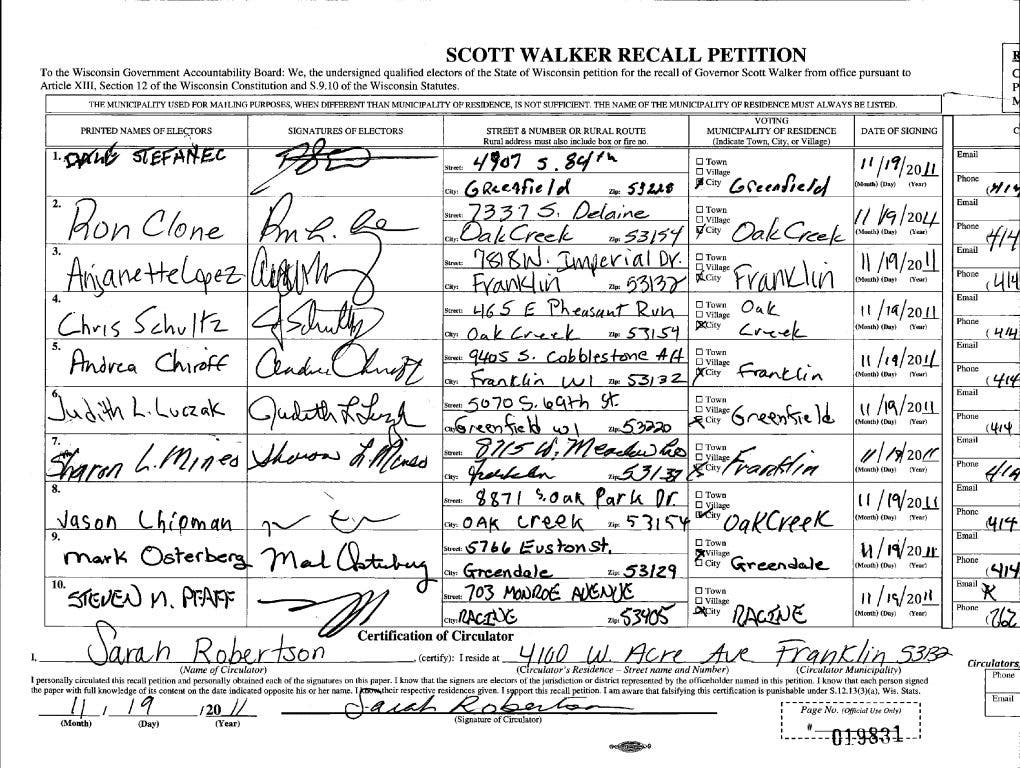 SCOTT WALKER RECALL PETITION
To the Wisconsin Government Accountability Board: We, the undersigned qualified electors of the State of Wisconsin petition for the recall of Governor Scott Walker from office pursuant to
Article XIII, Section 12 of the Wisconsin Constitution and S.9.10 of the Wisconsin Statutes.
THE MUNICIPALITY USED FOR MAILING PURPOSES, WHEN DIFFERENT THAN MUNICIPALITY OF RESIDENCE, IS NOT SUFFICIENT. THE NAME OF THE MUNICIPALITY OF RESIDENCE MUST ALWAYS BE LISTED.
PRINTED NAMES OF ELECTORS SIGNATURES OF ELECTORS STREET & NUMBER OR RURAL ROUTE VOTING MUNICIPALITY OF RESIDENCE DATE OF SIGNING
Rural address must also include box or fire no. (Indicate Town, City, or Village)
1. STEFANEC Street: 4907 S. 84th Town Village City Greenfield 11/19/2011 Email
City: Greenfield Zip: 53228 (Month) (Day) (Year) Phone
2. Ron Clone Street: 7337 S. Delaine Town Village City Oak Creek 11/19/2011 Email
City: Oak Creek Zip: 53154 (Month) (Day) (Year) Phone 414
3. Anjanette Lopez Street: 7818 W. Imperial Dr. Town Village City Franklin 11/19/2011 Email
City: Franklin Zip: 53132 (Month) (Day) (Year) Phone (414
4. Chris Schultz C Schultz Street: 465 E Pheasant Run Town Village City Oak Creek 11/19/2011 Email
City: Oak Creek Zip: 53154 (Month) (Day) (Year) Phone (414
5. Andrea Chiroff Andrea Chiroff Street: 9405 S. Cobblestone Town Village City Franklin 11/19/2011 Email
City: Franklin WI Zip: 53132 (Month) (Day) (Year) Phone (414
6. Judith L. Luczak Judith L Street: 5070 S. 69th St. Town Village City Greenfield 11/19/2011 Email
City: Greenfield WI Zip: 53220 (Month) (Day) (Year) Phone (414
7. Sharon L. Mines Sharon L. Mines Street: 8715 W. Town Village City Franklin 11/19/2011 Email
City: Franklin Zip: 53132 (Month) (Day) (Year) Phone
8. Jason Chipman Street: 8871 S. Oak Park Dr. Town Village City Oak Creek 11/19/2011 Email
City: OAK Creek Zip: 53154 (Month) (Day) (Year) Phone (414
9. Mark Osterberg Mark Osterberg Street: 5766 Euston St. Town Village City Greendale 11/19/2011 Email
City: Greendale Zip: 53129 (Month) (Day) (Year) Phone (414
10. STEVEN M. PFAFF Street: 703 MONROE AVENUE Town Village City RACINE 11/19/2011 Email
City: RACINE Zip: 53405 (Month) (Day) (Year) Phone
Certification of Circulator
I, Sarah Robertson , (certify): I reside at 4100 W. Acre Ave Franklin 53132
(Name of Circulator) (Circulator's Residence – Street name and Number) (Circulator Municipality)
Circulators,
Phone
Email
I personally circulated this recall petition and personally obtained each of the signatures on this paper. I know that the signers are electors of the jurisdiction or district represented by the officeholder named in this petition. I know that each person signed
the paper with full knowledge of its content on the date indicated opposite his or her name. I know their respective residences given. I support this recall petition. I am aware that falsifying this certification is punishable under S.12.13(3)(a), Wis. Stats.
11 / 19 /2011 Sarah Robertson
(Month) (Day) (Year) (Signature of Circulator)
Page No. (Official Use Only)
# 019831